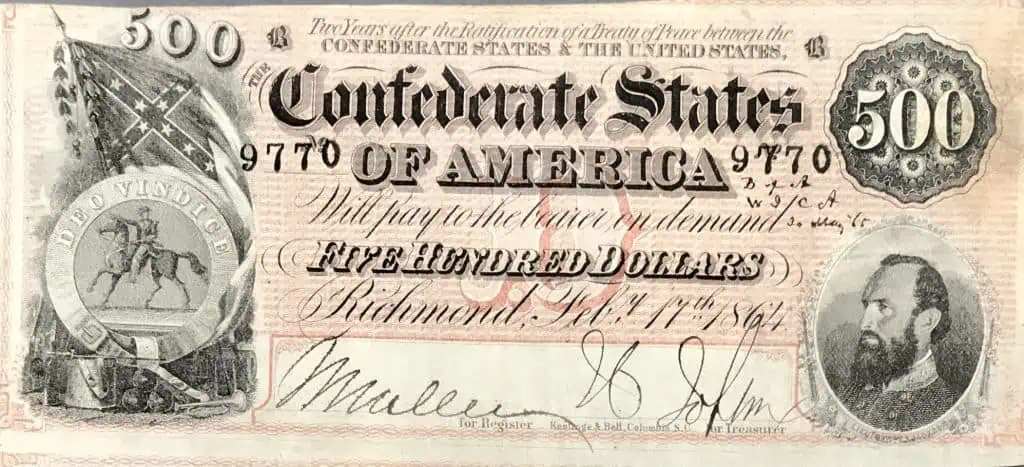 500
B Two Years after the Ratification of a Treaty of Peace between the B
CONFEDERATE STATES & THE UNITED STATES,
THE
Confederate States
500
9770 OF AMERICA 9770
DEO VINDICE
Will pay to the bearer on demand
FIVE HUNDRED DOLLARS
Richmond, Feb.y 17th 1864.
D
for Register Keatinge & Ball, Columbia S.C. for Treasurer